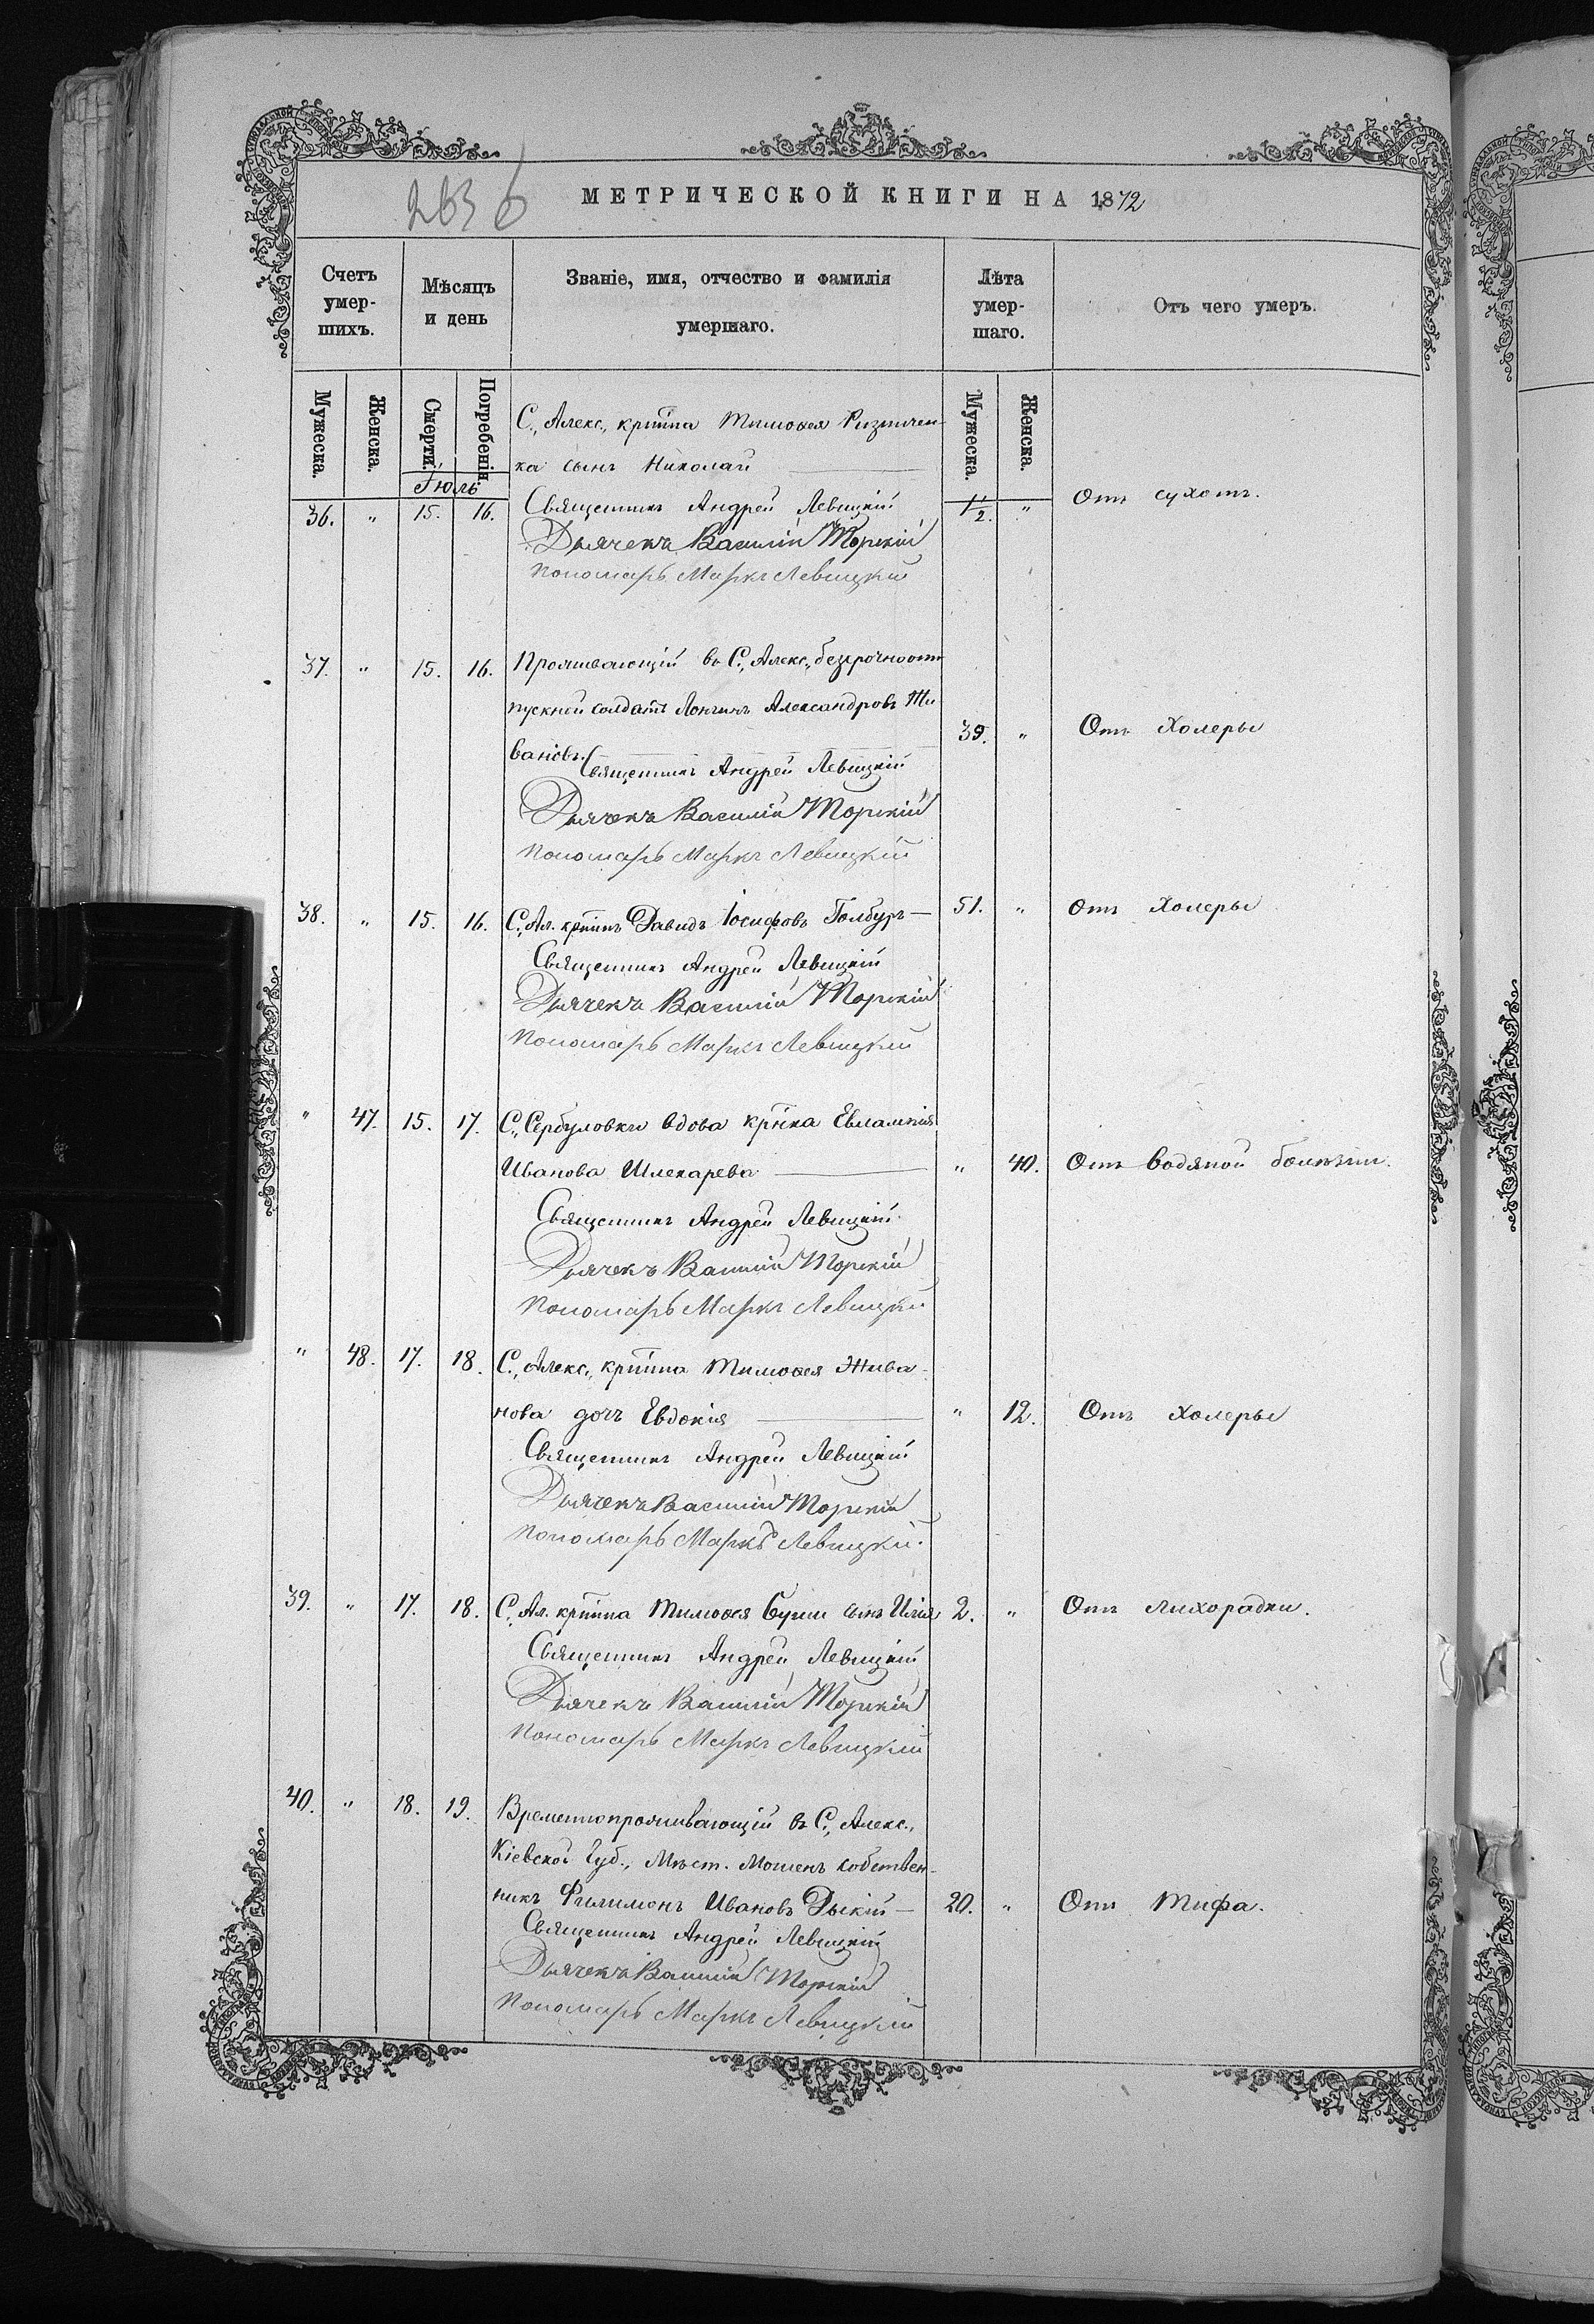 263 б
МЕТРИЧЕСКОЙ КНИГИ НА 1872
Счетъ умер-шихъ.
Мѣсяцъ и день
Званіе, имя, отчество и фамилія умершаго.
Лѣта умер-шаго.
Отъ чего умеръ.
Мужеска. Женска. Смерти. Погребенія. Мужеска. Женска.
Іюль
С., Алекс., кртіна Тимоѳея
ка сынъ Николай
36. " 15. 16. Священникъ Андрей Левицкій 1/2. " Отъ сухотъ.
Дьячекъ Василій Торскій
Пономарь Маркъ Левицкій
37. " 15. 16. Проживающій въ С., Алекс., безсрочноот
пускной солдатъ Лонгинъ Александровъ Жи
вановъ. 39. " Отъ Холеры
Священникъ Андрей Левицкій
Дьячекъ Василій Торскій
Пономарь Маркъ Левицкій
38. " 15. 16. С., Ал. кртінъ Давидъ Іосифовъ Голбуръ — 51. " Отъ Холеры
Священникъ Андрей Левицкій
Дьячекъ Василій Торскій
Пономарь Маркъ Левицкій
" 47. 15. 17. С., Сербуловки вдова крнка Евлампія
Иванова Шлекарева " 40. Отъ водяной болѣзни.
Священникъ Андрей Левицкій
Дьячекъ Василій Торскій
Пономарь Маркъ Левицкій
" 48. 17. 18. С., Алекс., кртіна Тимоѳея Жива-
нова дочь Евдокія " 12. Отъ Холеры
Священникъ Андрей Левицкій
Дьячекъ Василій Торскій
Пономарь Маркъ Левицкій
39. " 17. 18. С., Ал. кртіна Тимоѳея сынъ Илія 2. " Отъ лихорадки.
Священникъ Андрей Левицкій
Дьячекъ Василій Торскій
Пономарь Маркъ Левицкій
40. " 18. 19. Временнопроживающій въ С., Алекс.,
Кіевской Губ., Мѣст. Мошенъ собствен-
никъ Филимонъ Ивановъ Дыкій — 20. " Отъ Тифа.
Священникъ Андрей Левицкій
Дьячекъ Василій Торскій
Пономарь Маркъ Левицкій